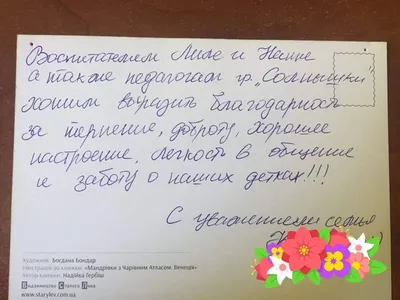 Воспитателям Лиле и Нелине
а также педагогам гр. „Солнышки"
хотим выразить благодарность
за терпение, доброту, хорошее
настроение, легкость в общение
и заботу о наших детках!!!
С уважением семья
Художник: Богдана Бондар
Ілюстрація до книжки: «Мандрівки з Чарівним Атласом. Венеція»
Автор книжки: Надійка Гербіш
Видавництво Старого Лева
www.starylev.com.ua